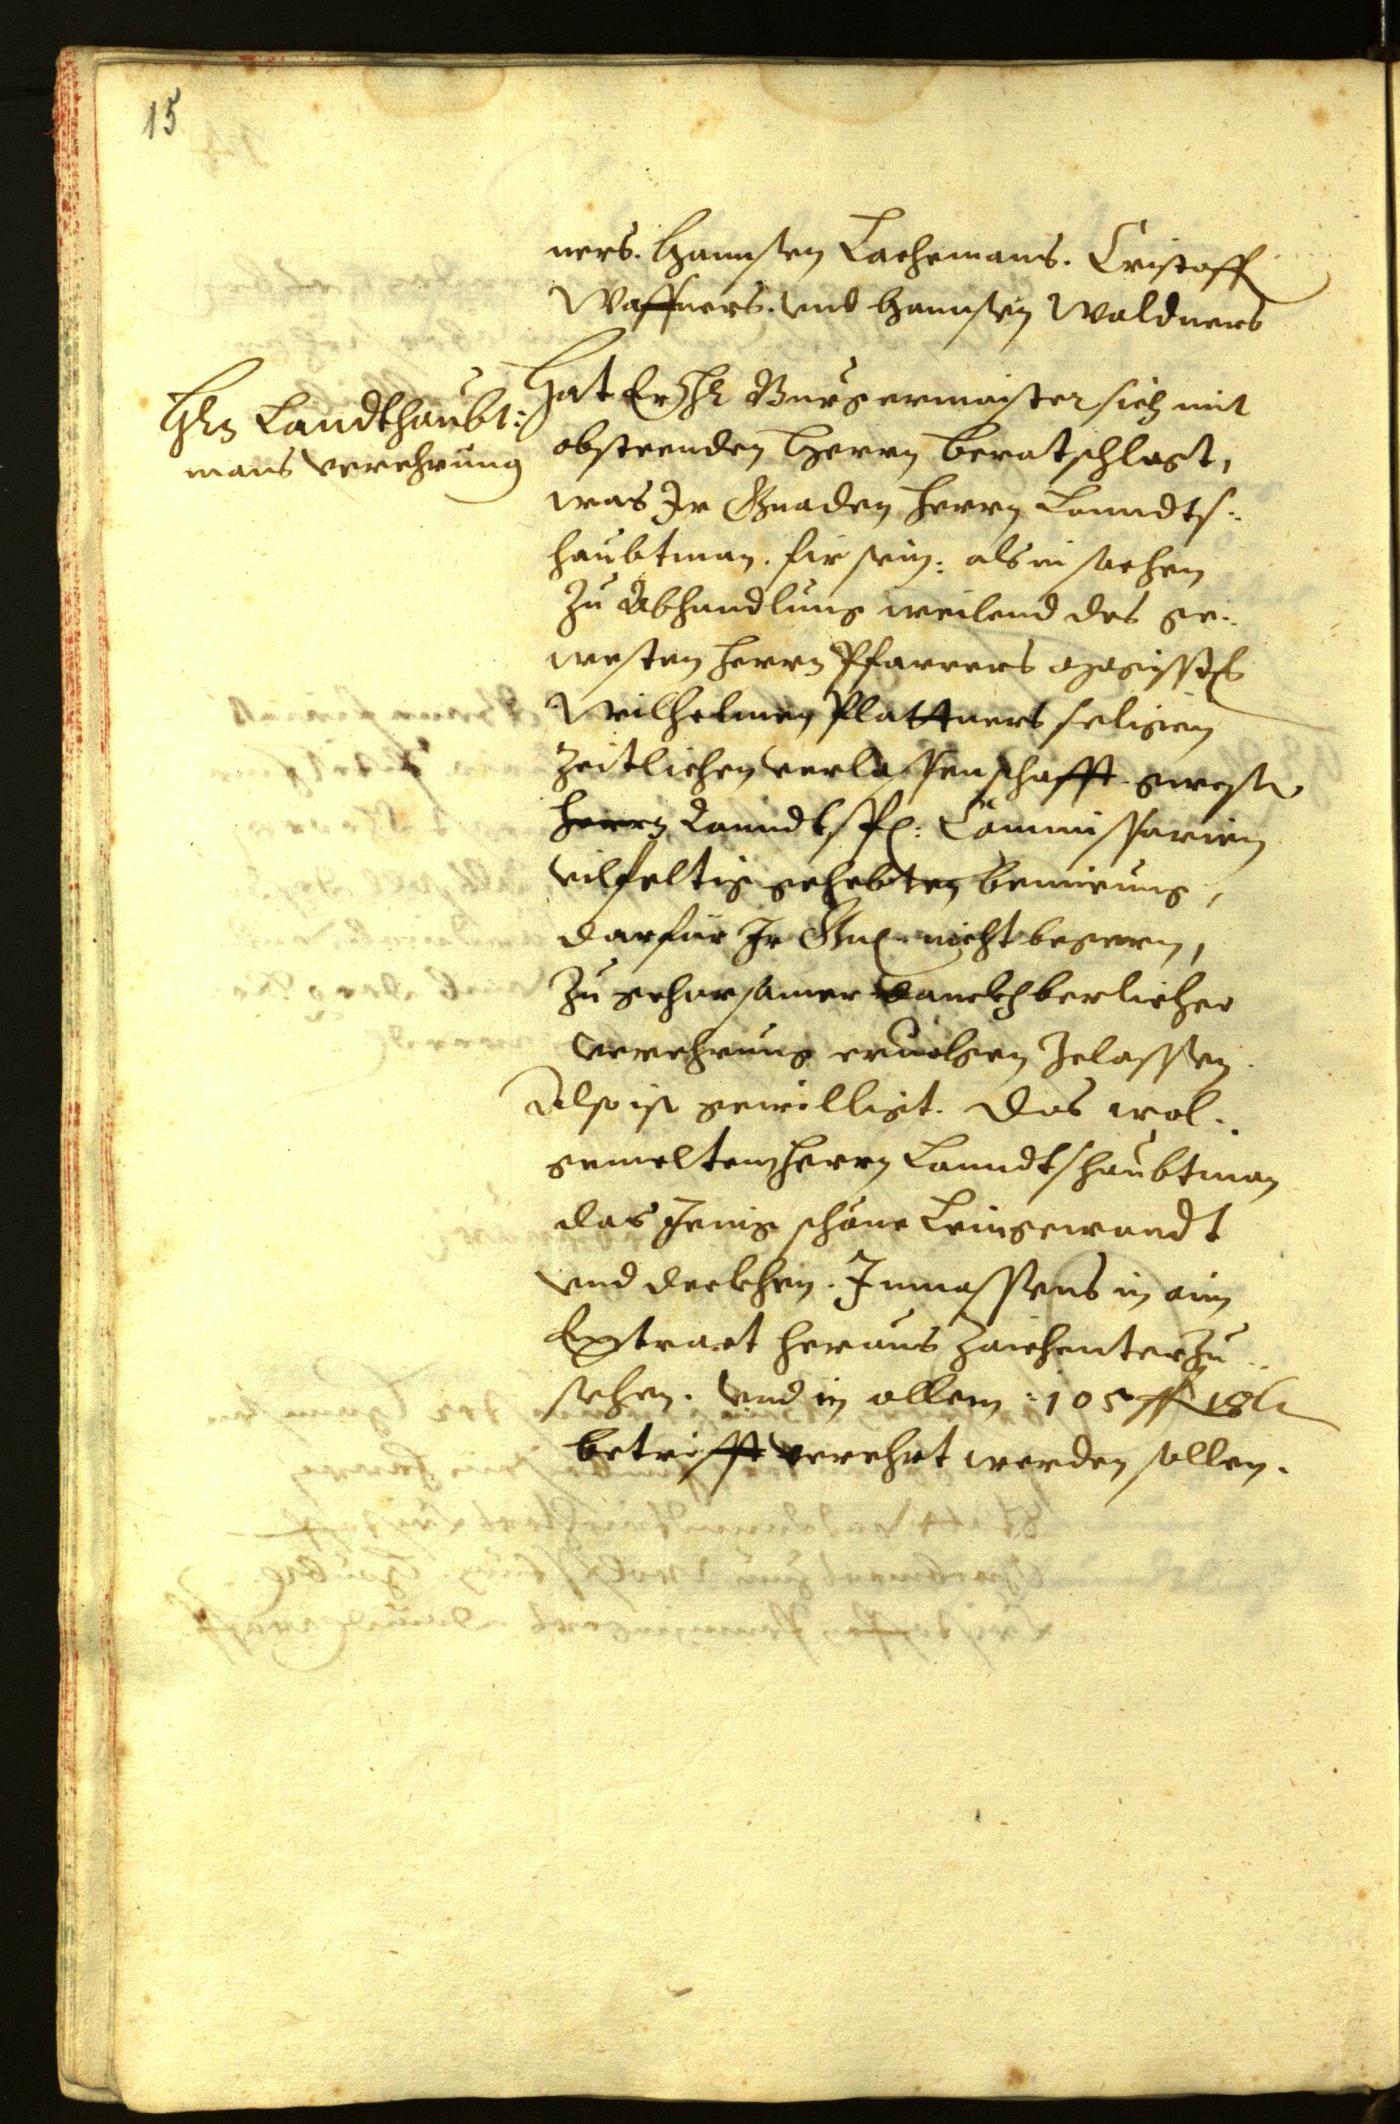 15
ners. Hannsen Lachemans. Cristoff
Waffners. vnd Hannsen Waldners
Hrn Landtshaubt:
mans verehrung
Hat Er Hr Burgermaister sich mit
obsteenden Herrn beratschlagt,
was Ir Gnaden Herrn Lanndts=
haubtman. fir sein: als in sachen
Zu Abhandlung weilend des ge=
westen Herrn Pfarrers
Wilhelmen Plattners seligen
Zeitlichen verlassenschafft gwester
Herrn Lanndtsf: Commissarien
vilfeltig gehebten bemieung,
darfür Ir Gn: nicht begern,
Zu gehorsamer danckhberlicher
verehrung eruolgen Zelassen.
Also ist gewilligt. Das wol=
gemeltem Herrn Lanndtshaubtman
das Jenig schöne Leingewandt
vnd deckhen. Inmassens in aim
Extract heraus Zaichenter Zu
sehen. Vnd in allem: 105 fl 18 kr
betrifft verehrt werden sollen.